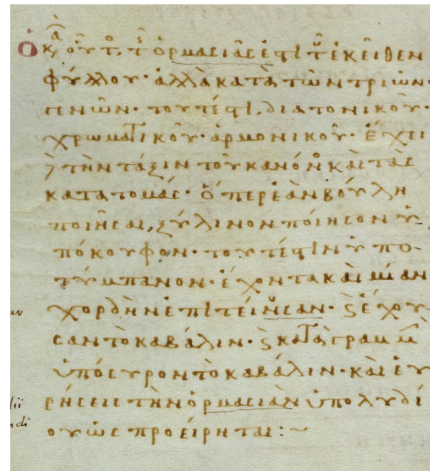 ὁ κα οὗτ τ ὁρμασίας ἐστὶ τ ἐκεῖθεν
φύλλου· ἀλλὰ κατὰ τῶν τριῶν·
γενῶν· τουτέστι, διατονικοῦ·
χρωματικοῦ· ἁρμονικοῦ· ἔχει
ϗ τὴν τάξιν τοῦ κανόν καὶ τὰς
κατατομάς· ὅπερ ἐὰν βούλη
ποιῆσαι, ξύλινον ποίησον ὑ
πόκουφον· τουτέστιν ὑπο
τύμπανον· ἔχοντα καὶ μίαν
χορδὴν ϗ ἔχου
σαν τὸ καβάλιν· ϗ κατὰ γραμμ
ὑπόσυρον τὸ καβάλιν· καὶ εὑ
ρήσεις τὴν ὁρμασιὰν ὑπολυδί
ου ὡς προείρηται:~